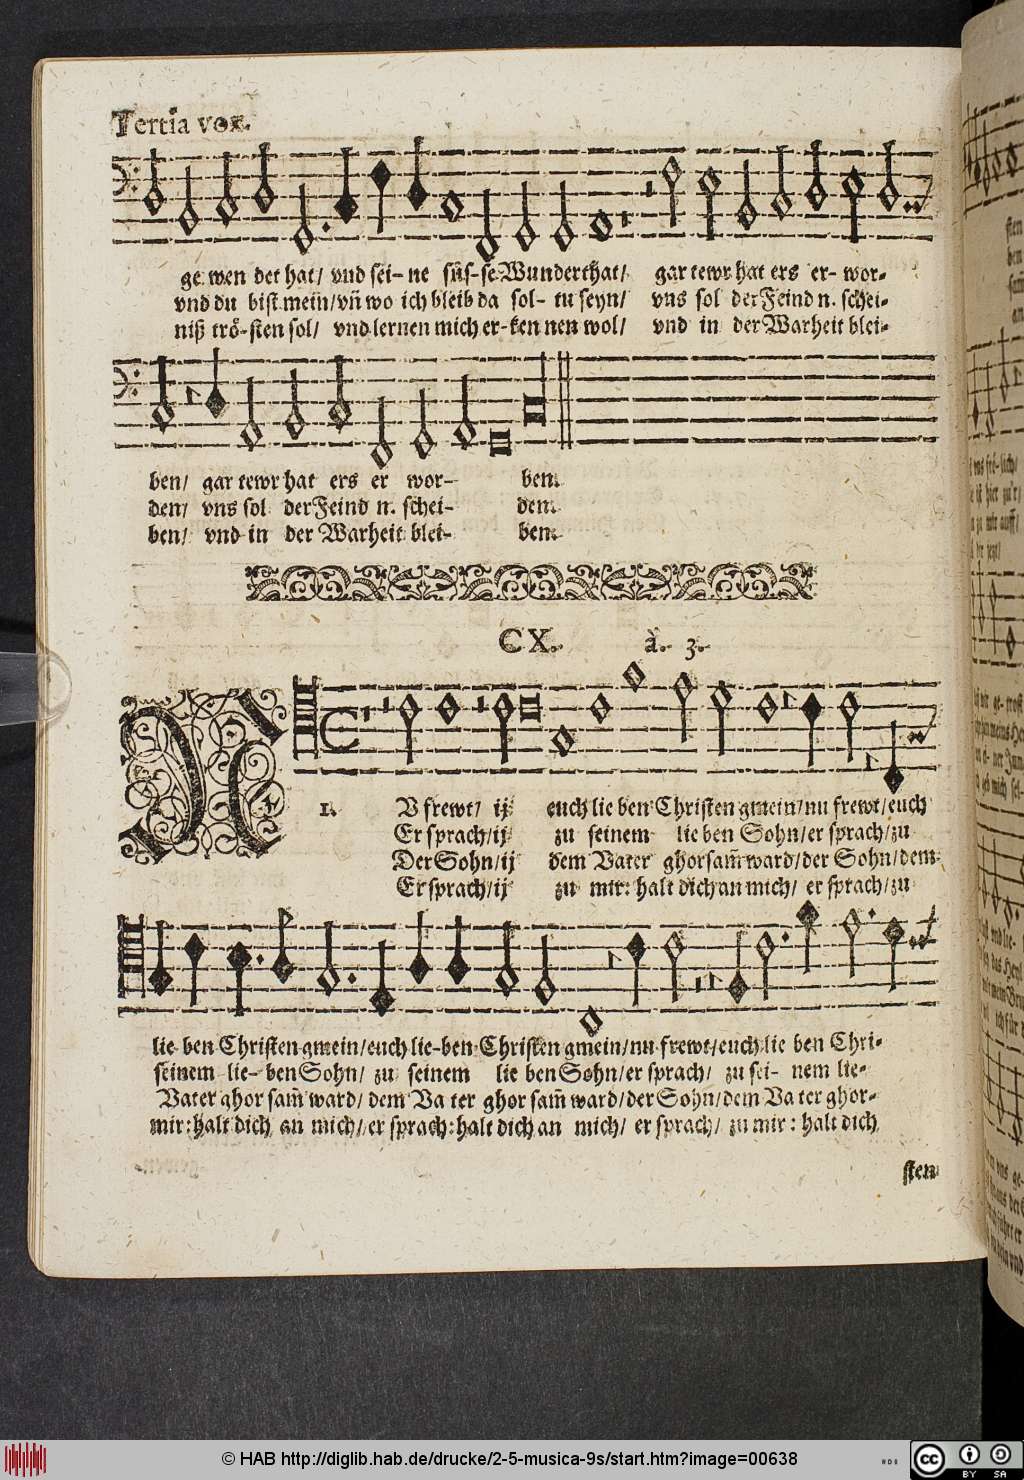 Tertia vox.
ge wen det hat/ vnd sei- ne süs- se Wunderthat/ gar tewr hat ers er- wor-
vnd du bist mein/ vn̄ wo ich bleib da sol- tu seyn/ vns sol der Feind n. schei-
niß trö-sten sol/ vnd lernen mich er-ken nen wol/ vnd in der Warheit blei-
ben/ gar tewr hat ers er wor- ben.
den/ vns sol der Feind n. schei- den.
ben/ vnd in der Warheit blei- ben.
CX. à. 3.
N
1. V frewt/ ij euch lie ben Christen gmein/ nu frewt/ euch
Er sprach/ ij zu seinem lie ben Sohn/ er sprach/ zu
Der Sohn/ ij dem Vater ghorsam̄ ward/ der Sohn/ dem
Er sprach/ ij zu mir: halt dich an mich/ er sprach/ zu
lie ben Christen gmein/ euch lie-ben Christen gmein/ nu frewt/ euch lie ben Chri-
seinem lie- ben Sohn/ zu seinem lie ben Sohn/ er sprach/ zu sei- nem lie-
Vater ghor sam̄ ward/ dem Va ter ghor sam̄ ward/ der Sohn/ dem Va ter ghor-
mir: halt dich an mich/ er sprach: halt dich an mich/ er sprach/ zu mir: halt dich
sten
© HAB http://diglib.hab.de/drucke/2-5-musica-9s/start.htm?image=00638
CC BY SA